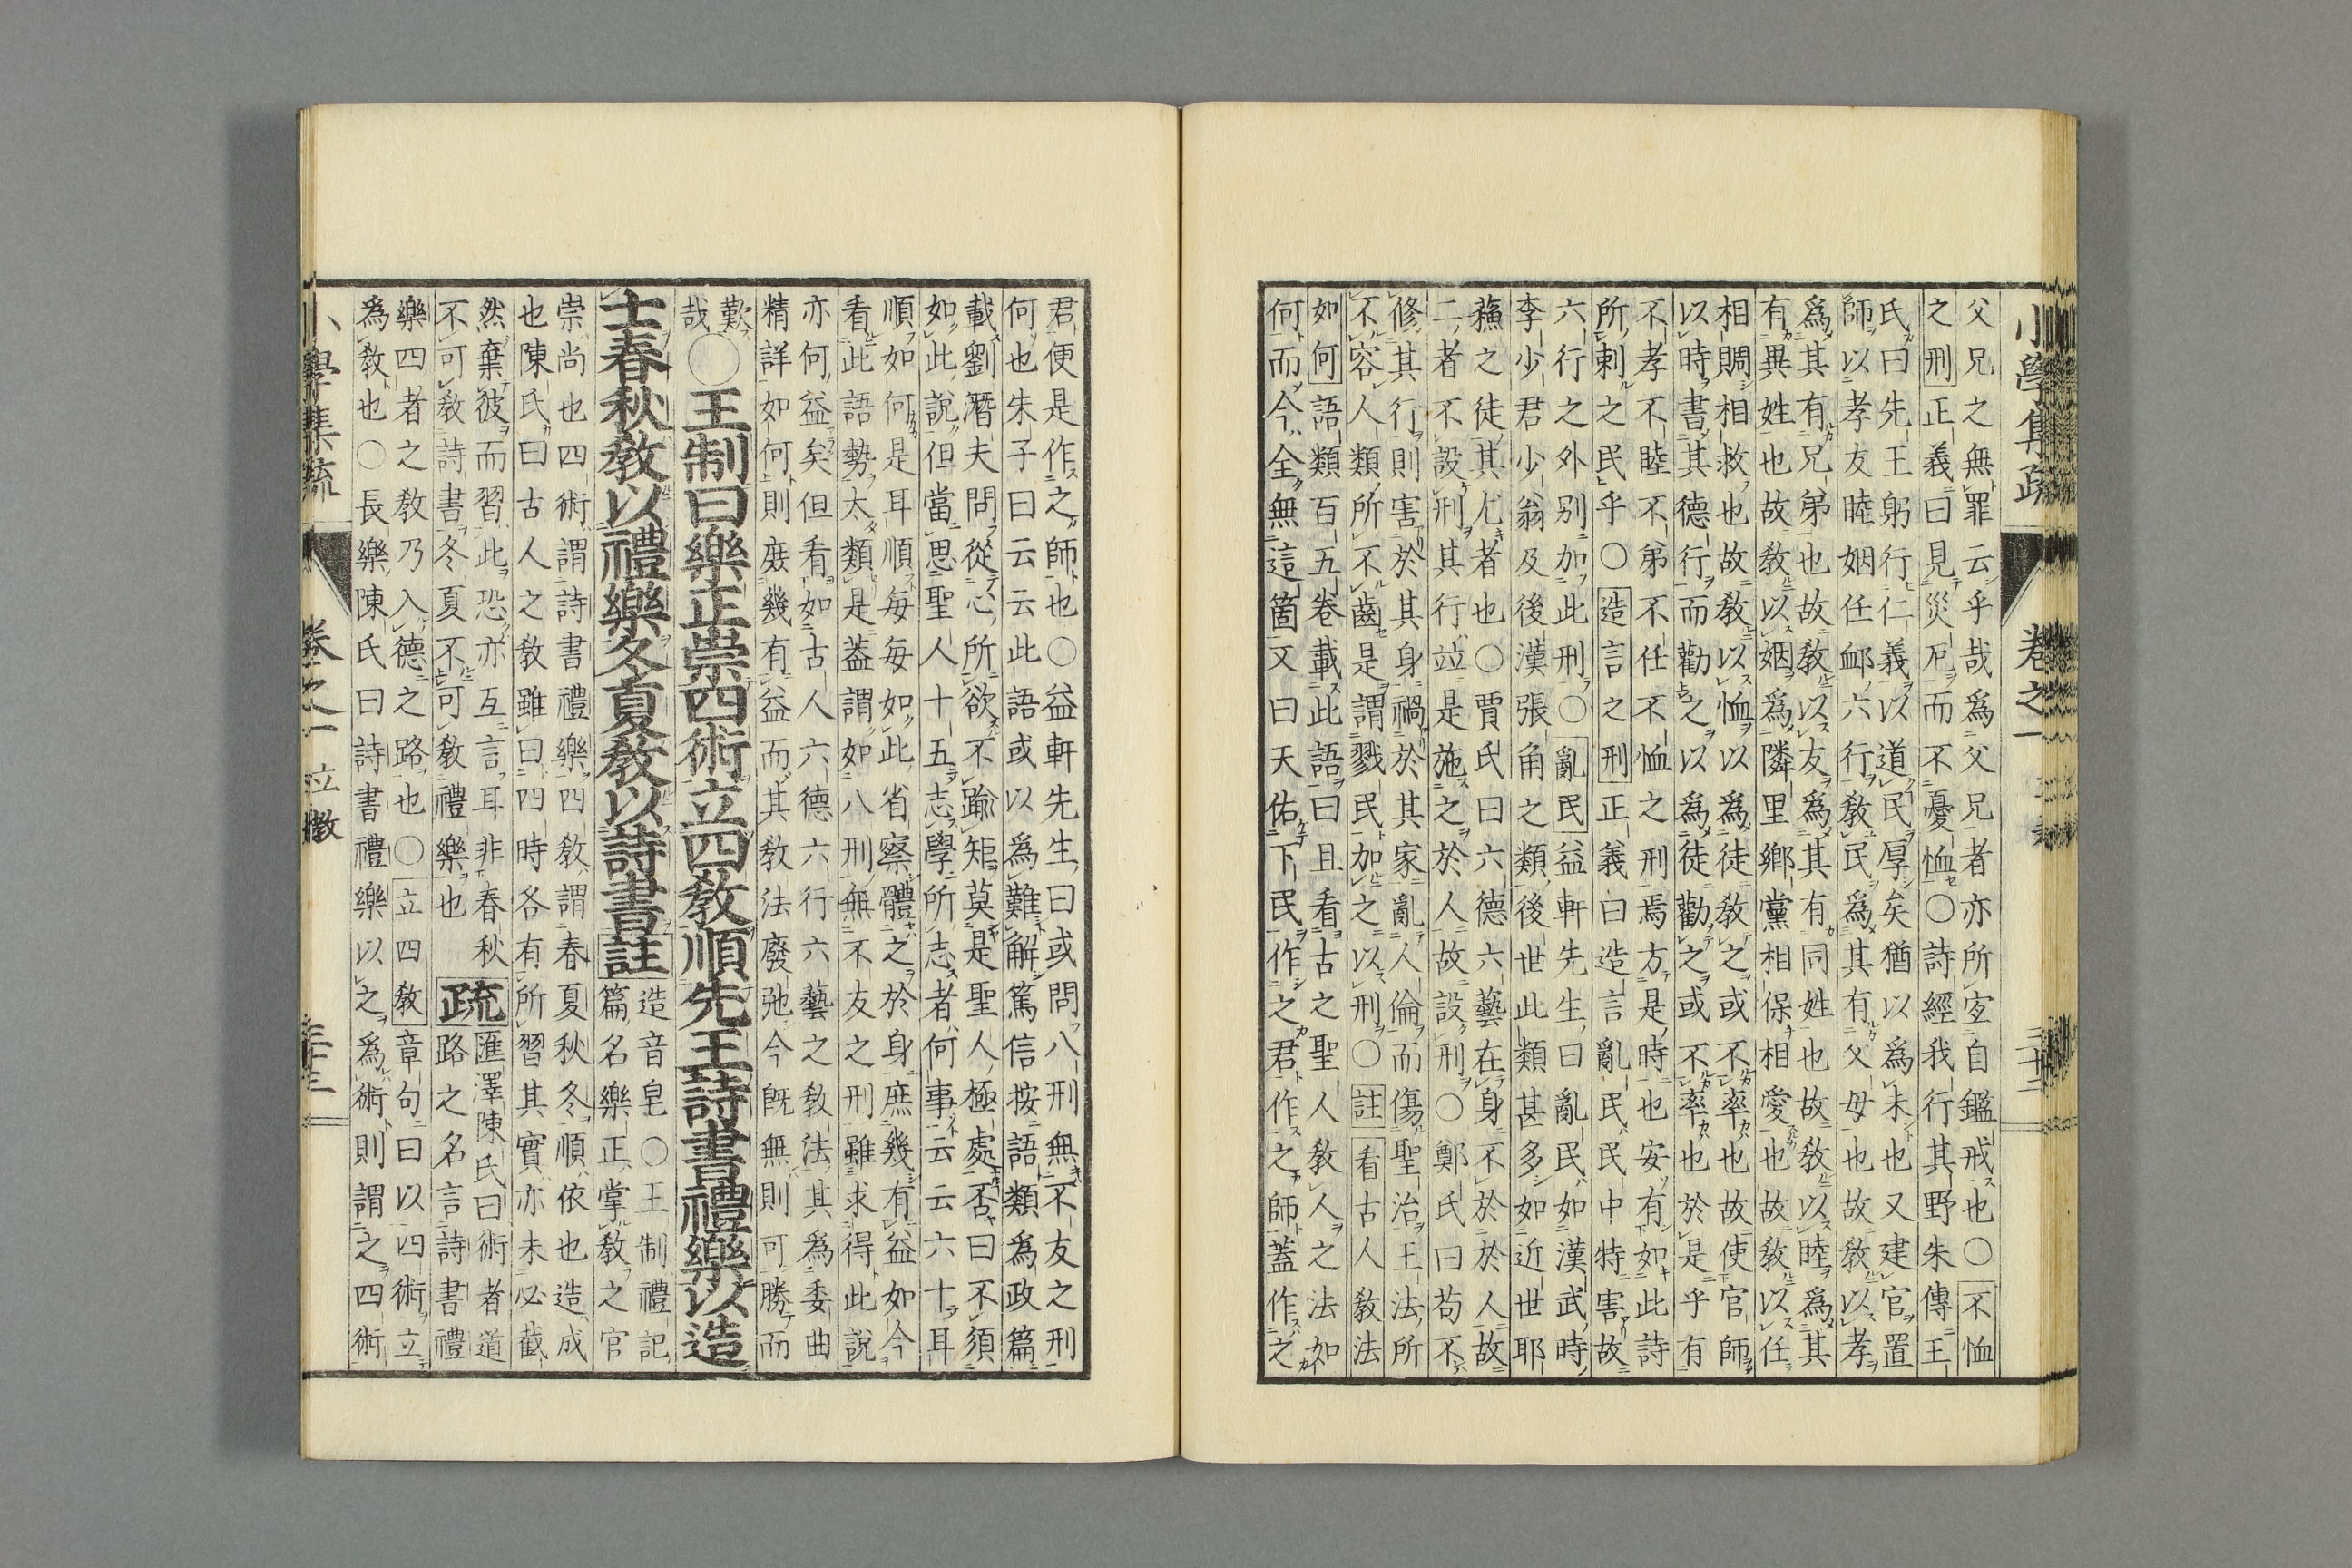 小學集疏 卷之一 三十二
父兄之無罪云乎哉爲父兄者亦所宜自鑑戒也〇不恤
之刑正義曰見災厄而不憂恤〇詩經我行其野朱傳王
氏曰先王躬行仁義以道民厚矣猶以爲未也又建官置
師以孝友睦姻任卹六行教民爲其有父母也故教以孝
爲其有兄弟也故教以友爲其有同姓也故教以睦爲其
有異姓也故教以姻爲隣里鄉黨相保相愛也故教以任
相賙相救也故教以恤以爲徒教之或不率也故使官師
以時書其德行而勸之以爲徒勸之或不率也於是乎有
不孝不睦不弟不任不恤之刑焉方是時也安有如此詩
所刺之民乎〇造言之刑正義曰造言亂民民中特害故
六行之外別加此刑〇亂民益軒先生曰亂民如漢武時
李少君少翁及後漢張角之類後世此類甚多如近世耶
蘓之徒其尤者也〇賈氏曰六德六藝在身不於於人故
二者不設刑其行竝是施之於人故設刑〇鄭氏曰苟不
修其行則害於其身禍於其家亂人倫而傷聖治王法所
不容人類所不齒是謂戮民加之以刑〇註看古人教法
如何語類百五卷載此語曰且看古之聖人教人之法如
何而今全無這箇文曰天佑下民作之君作之師蓋作之
君便是作之師也〇益軒先生曰或問八刑無不友之刑
何也朱子曰云云此語或以爲難解篤信按語類爲政篇
載劉潛夫問從心所欲不踰矩莫是聖人極處否曰不須
如此說但當思聖人十五志學所志者何事云云六十耳
順如何是耳順每每如此省察體之於身庶幾有益如今
看此語勢太類是蓋謂如八刑無不友之刑雖求得此說
亦何益矣但看如古人六德六行六藝之教法其爲委曲
精詳如何則庶幾有益而其教法廢弛今既無則可勝而
歎哉〇王制曰樂正崇四術立四教順先王詩書禮樂以造
士春秋教以禮樂冬夏教以詩書註造音皂〇王制禮記
篇名樂正掌教之官
崇尚也四術謂詩書禮樂四教謂春夏秋冬順依也造成
也陳氏曰古人之教雖曰四時各有所習其實亦未必截
然棄彼而習此恐亦互言耳非春秋
不可教詩書冬夏不可教禮樂也疏滙澤陳氏曰術者道
路之名言詩書禮
樂四者之教乃入德之路也〇立四教章句曰以四術立
爲教也〇長樂陳氏曰詩書禮樂以之爲術則謂之四術
小學集疏 卷之一 立教 三十三